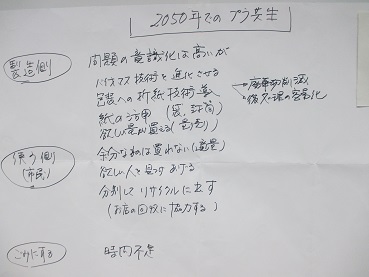 2050年でのプラ共生
製造側
問題の意識化は高いが
バイオマス技術を進化させる
包装への折紙技術
紙の活用(袋、封筒)
欲しい量が買える(量り売り)
使う側
(市民)
余分なものは買わない(適量)
欲しい人を見つけあげる
分別してリサイクルに出す
(お店の回収に協力する)
ごみにする
時間不足